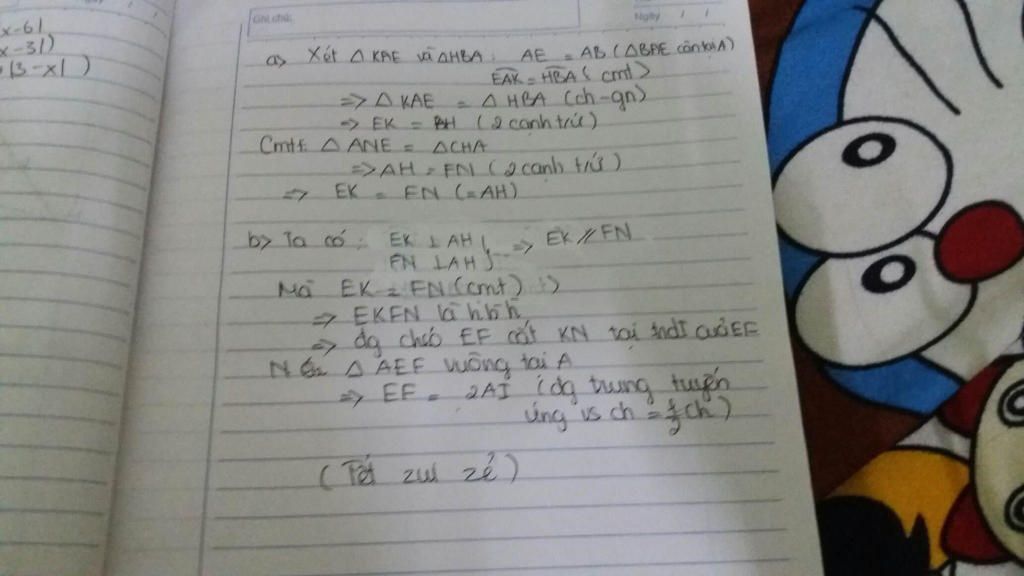 x-6|
x-3|)
|3-x| )
Ghi chú:
Ngày / /
a> Xét △KAE và △HBA: AE = AB (△BAE cân tại A)
EAK = HBA (cmt)
=> △KAE = △HBA (ch-gn)
=> EK = AH (2 cạnh t/ứ)
Cmtt: △ANE = △CHA
=> AH = FN (2 cạnh t/ứ)
=> EK = FN (=AH)
b> Ta có: EK ⊥ AH
FN ⊥ AH } => EK // FN
Mà EK = FN (cmt)
=> EKFN là hbh
=> đg chéo EF cắt KN tại tđ của EF
Nếu △AEF vuông tại A
=> EF = 2AI (đg trung tuyến
ứng vs ch = 1/2 ch)
(Tết zui zẻ)